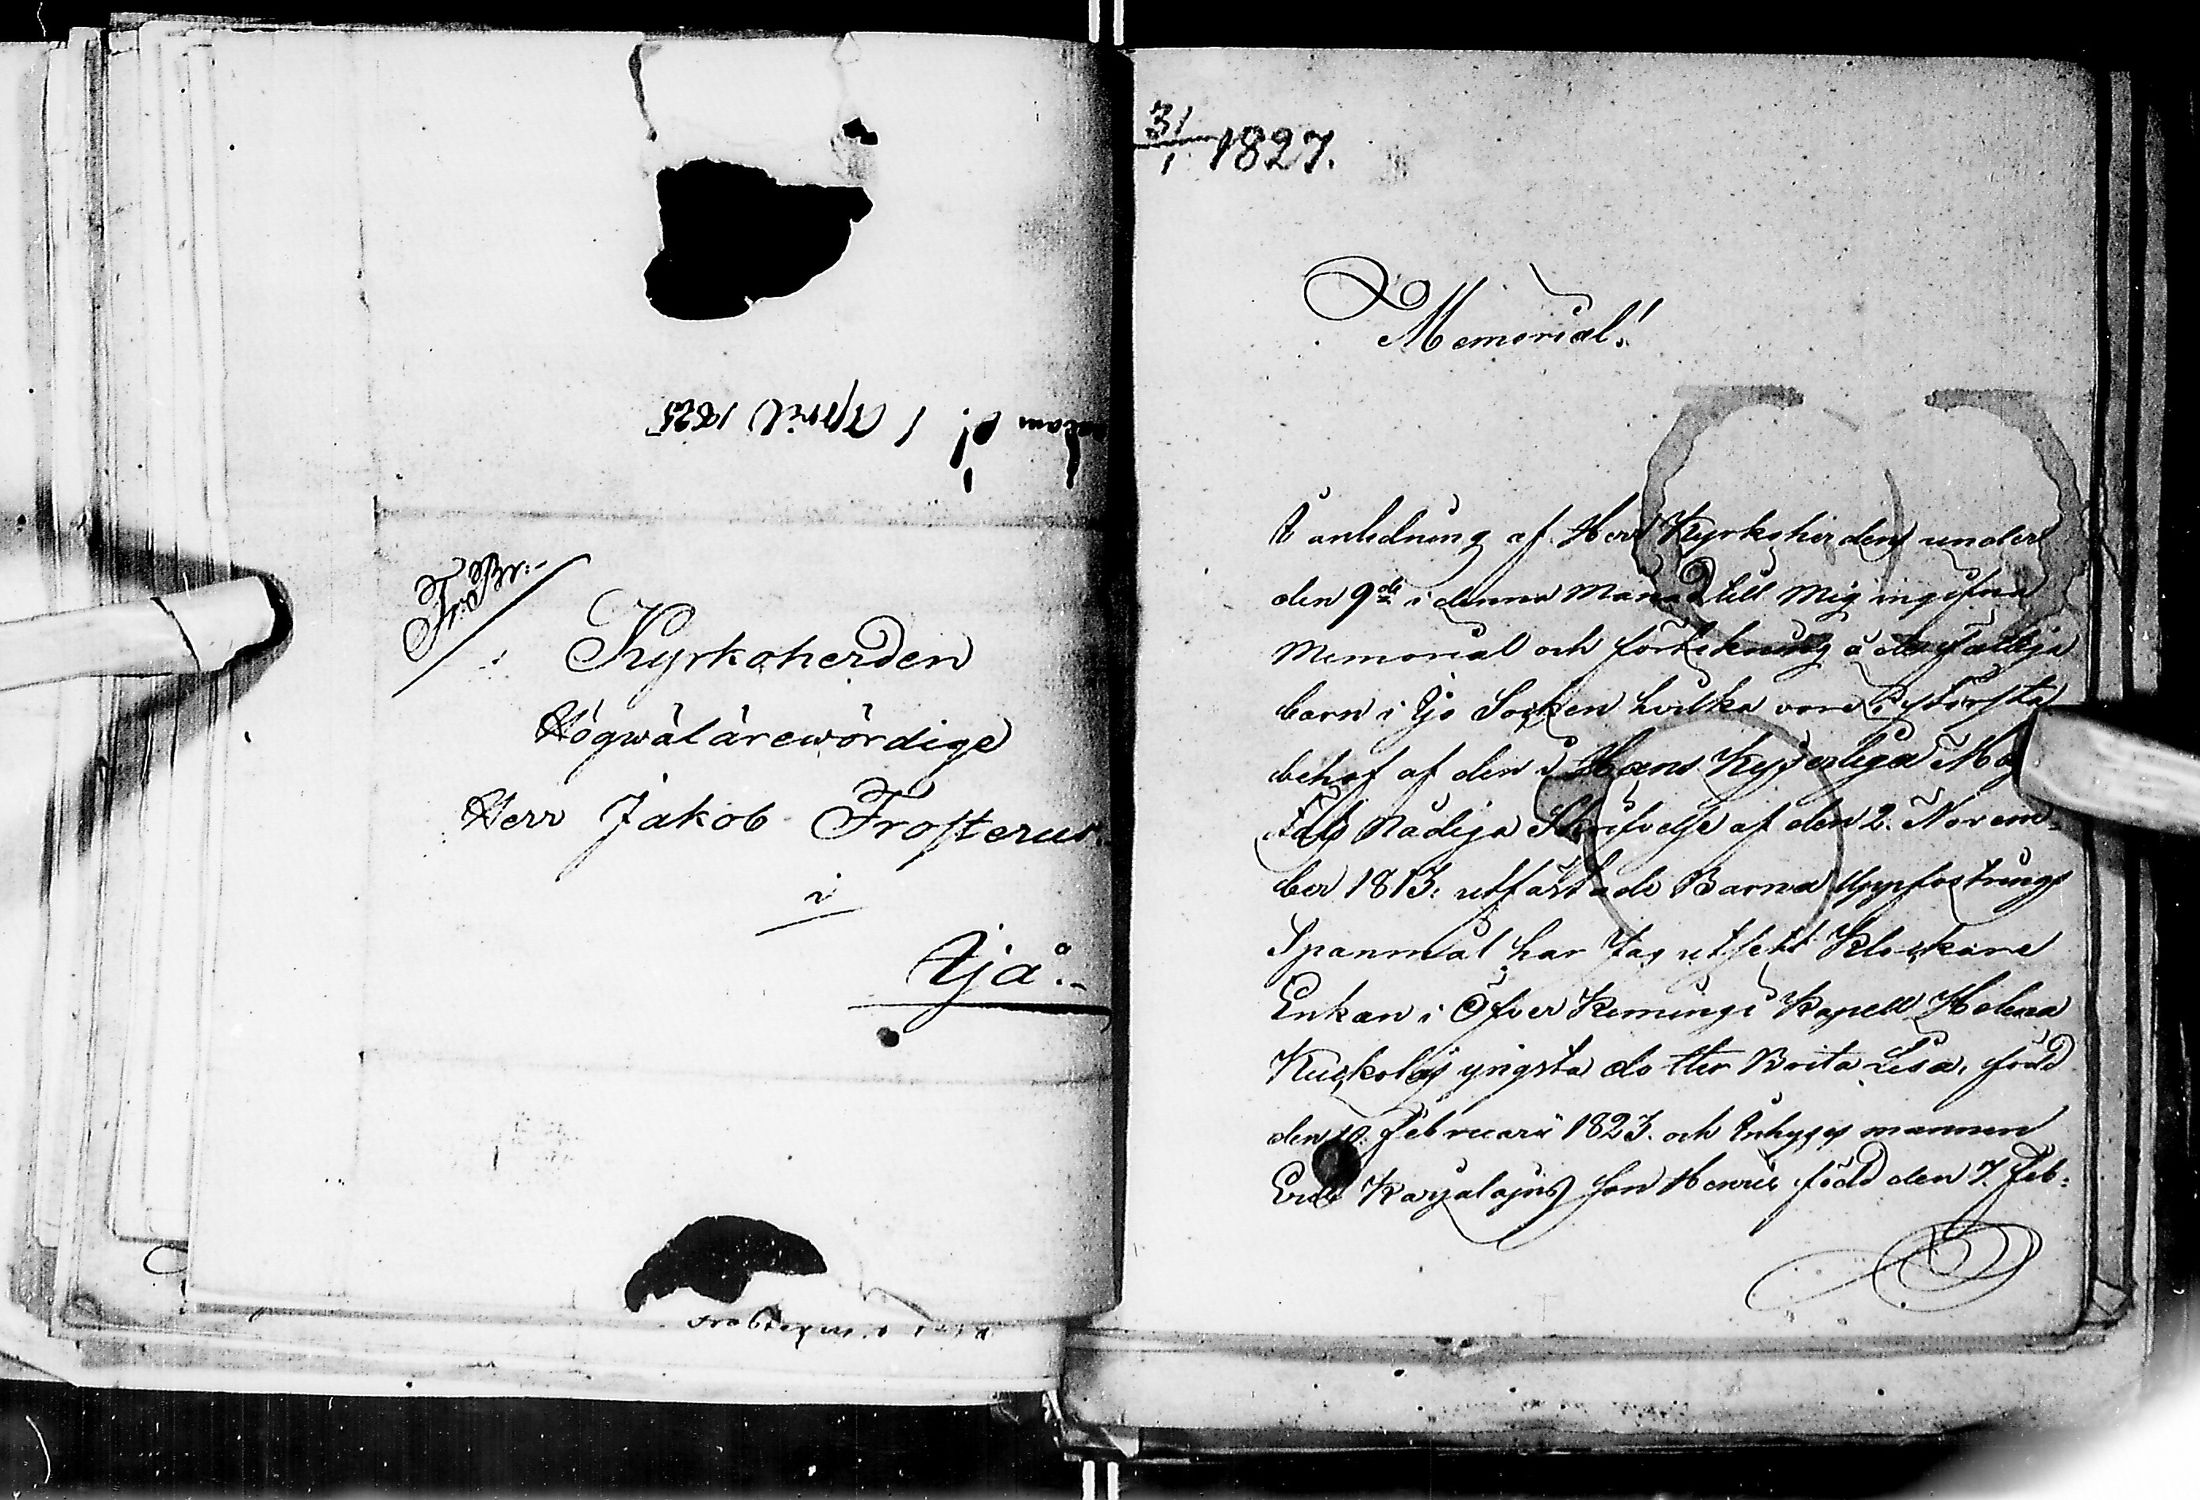 1 April 1825
Fr: Br:-
Kyrkoherden
Högwälärewördige
Herr Jakob Frosterus.
i
Ijå.-
31/1 1827.
Memorial!
I anledning af Herr Kyrkoherdens under
den 9de i denna Månad till Mig ingifna
Memorial och förtekning å de fattiga
barn i Ijo Socken hvilka vore i största
behof af den i Hans Kejserliga Maj
Nådiga Skrifvelse af den 2. Novem-
ber 1813: utfästade Barna Uppfostrings
Spanmål har Jag utsett Klockare
Enkan i Öfver Kiminge Kapell Helena
Kuckolas yngsta dotter Brita Lisa, född
den 10. Februarii 1823. och Inhyses mannen
Eric Karjalajns son Henric född den 7. Feb: